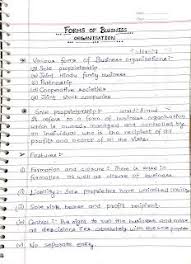 FORMS OF BUSINESS
ORGANISATION
Various forms of Business organisations:-
(a) Sole proprietorship
(b) Joint Hindu family business
(c) Partnership
(d) Cooperative societies
(e) Joint stock companies
Sole proprietorship:-
It refers to a form of business organisation
which is owned, managed and controlled by
an individual who is the recipient of all
profits and bearer of all the risks.
Features:-
(i) Formation and closure: There is ease in
formation as well as closure of business
(ii) Liability:- Sole proprietors have unlimited liability
(iii) Sole risk bearer and profit recipient.
(iv) Control: The right to run the business and make
all decisions lies absolutely with the sole proprietor
(v) No separate entity.